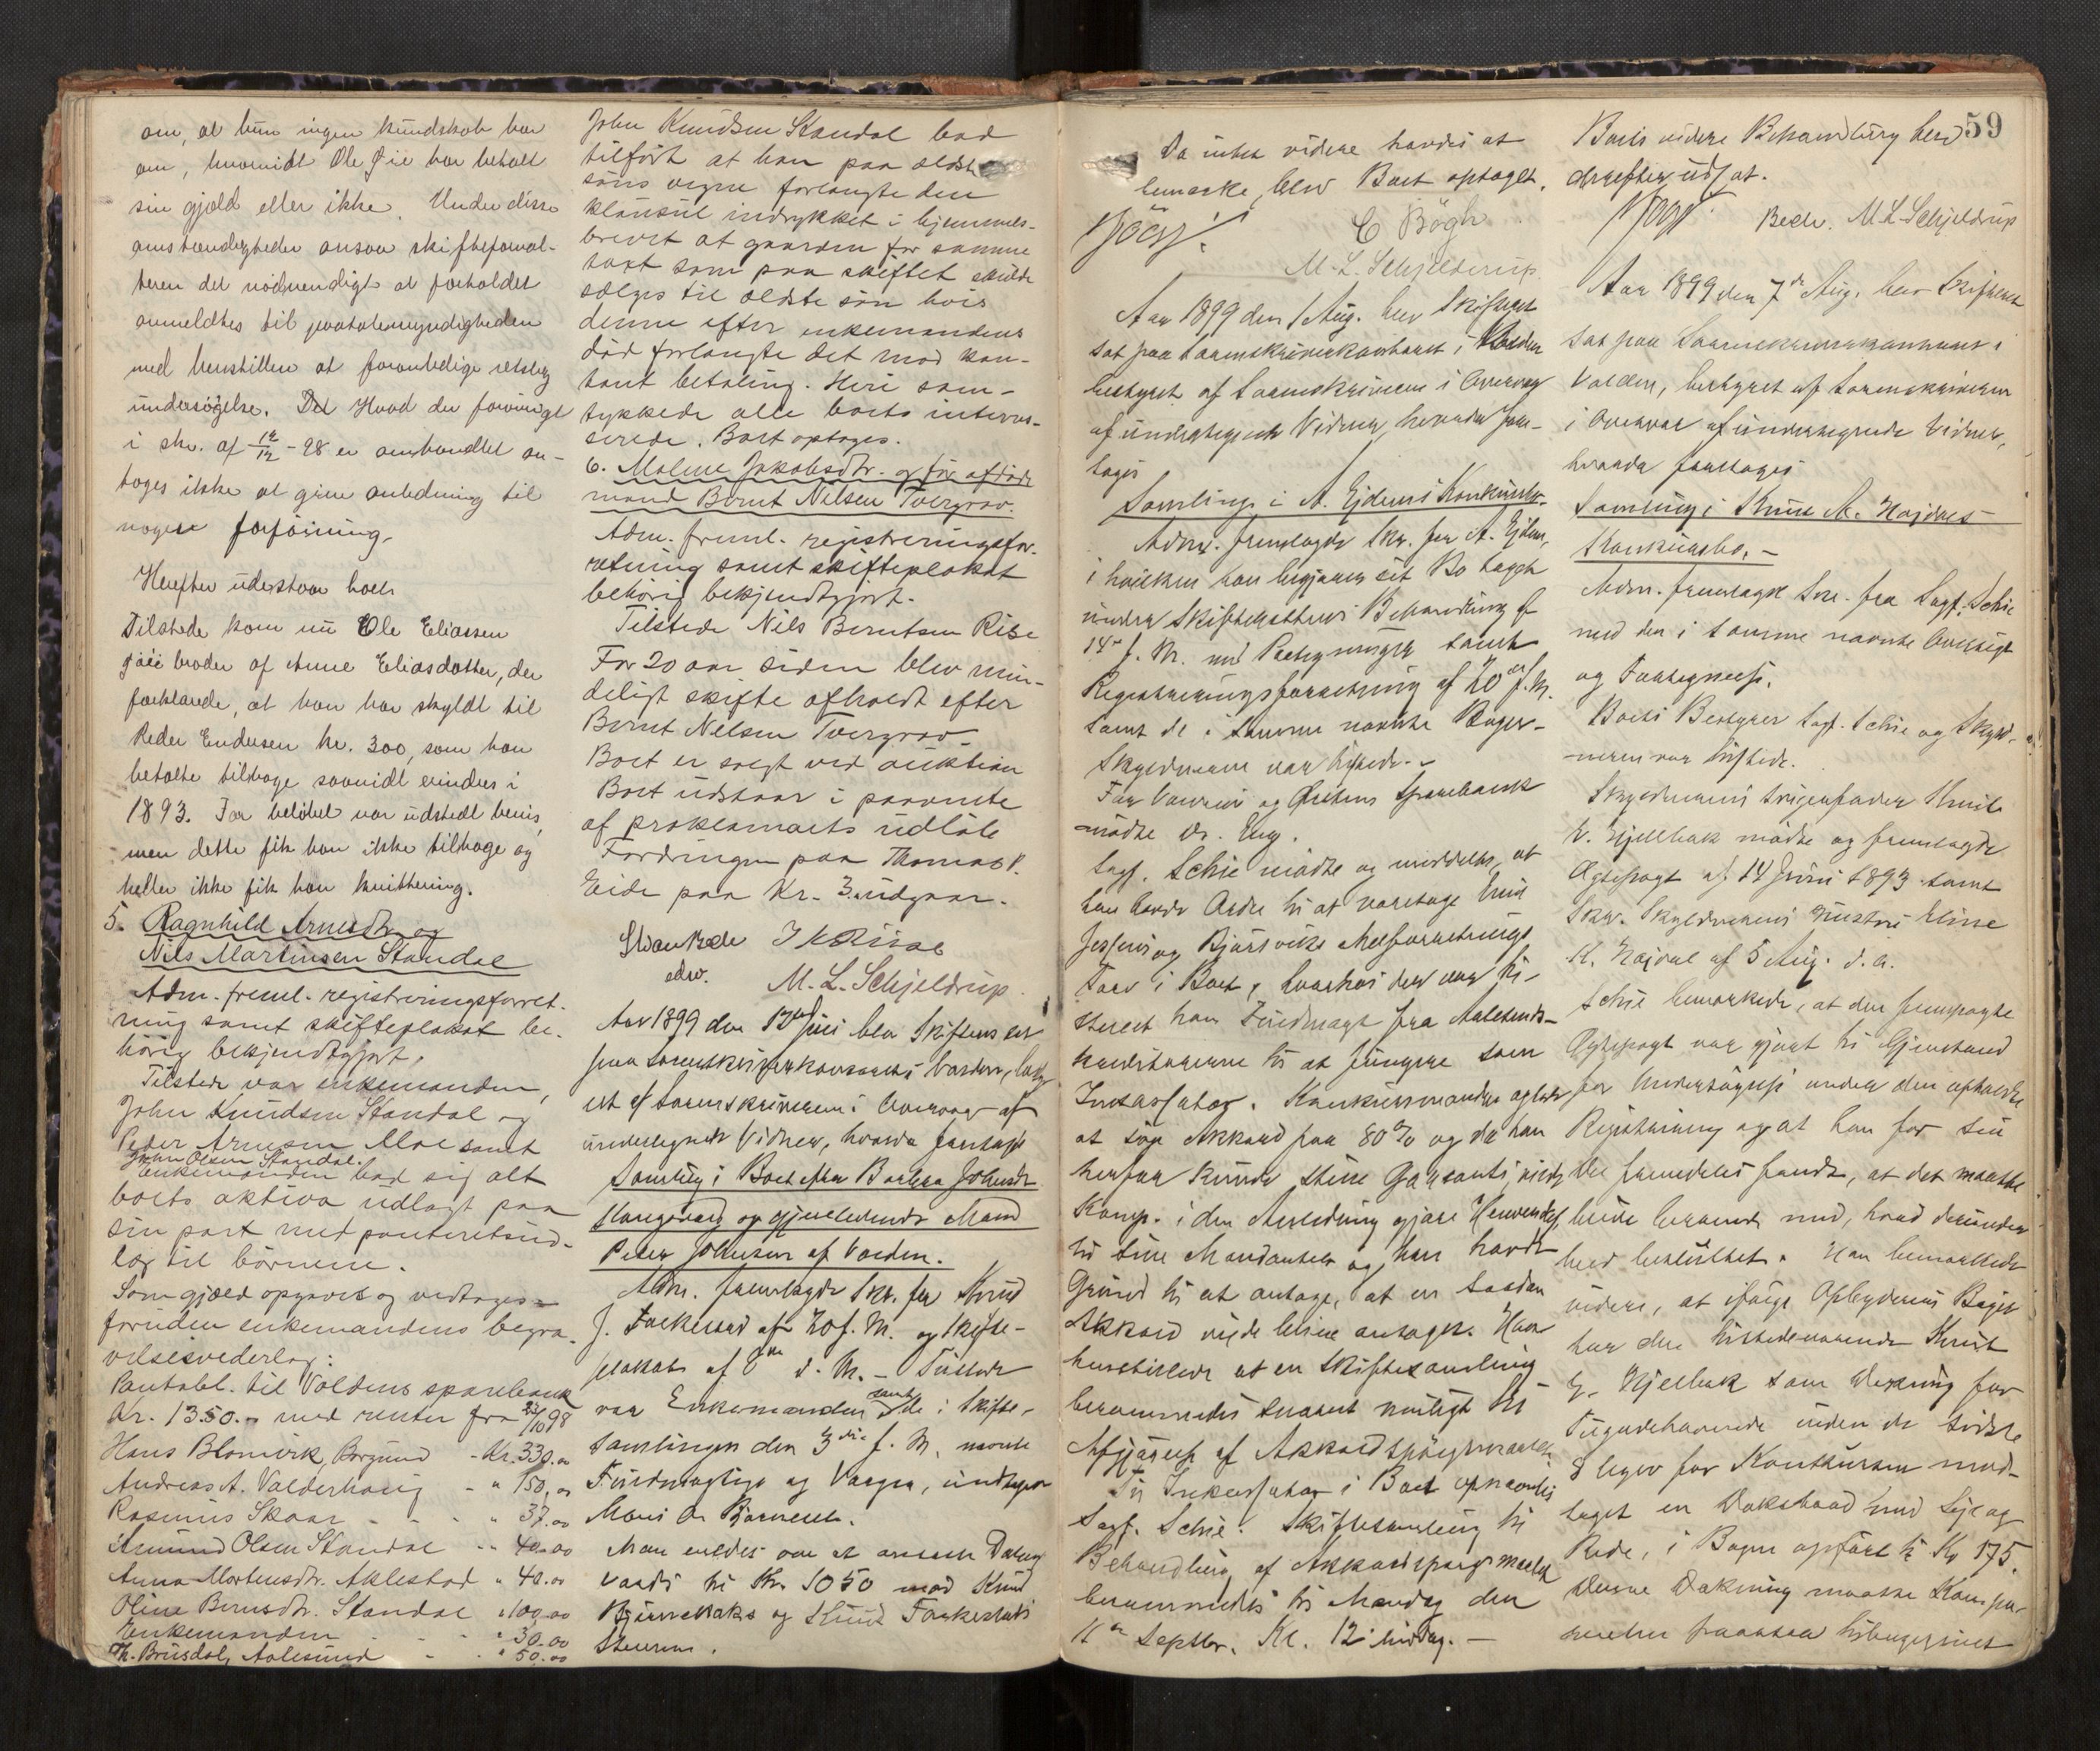 om, at hun ingen kundskab har
om, hvorvidt Ole Gjie har betalt
sin gjæld eller ikke. Under disse
omstændigheder ansaa skifteforval-
teren det nødvendigt at forholdet
anmeldtes til paatalemyndigheden
med henstillen at foranledige retslig
undersøgelse. Det Hvad der forøvrigt
i skr. af 12/12 - 98 er omhandlet an-
toges ikke at give anledning til
nogen forføining.
Herefter udestaar boet
Tilstede kom nu Ole Eliassen
broder af Anne Eliasdatter, der
forklarede, at han har skyldt til
Peder Endresen kr. 300, som han
betalte tilbage saavidt erindres i
1893. For beløbet var udstedt bevis,
men dette fik han ikke tilbage og
heller ikke fik han kvittering.
5. Ragnhild Arnesdtr. og
Nils Martinsen Standal
Adm. freml. registreringsforret-
ning samt skifteplakat be-
hørig bekjendtgjort.
Tilstede var enkemanden,
John Knudsen Standal og
Peder Arnesen Moe samt
John Olsen Standal.
Enkemanden bad sig alt
boets aktiva udlagt paa
sin part med panteretsud-
læg til børnene.
Som gjæld opgaves og vedtoges
foruden enkemandens begra-
velsesvederlag:
Pantobl. til Voldens sparebank
Kr. 1350.- med renter fra 23/10 98
Hans Blomvik, Borgund - Kr. 330.00
Andreas A. Valderhaug - " 150,00
Rasmus Skaar - - - " 37.00
Amund Olsen Standal - " 40.00
Anna Mortensdtr. Aklestad " 40.00
Oline Berntsdtr. Standal " 100.00
Enkemanden - - - " 30.00
Th. Brusdal, Aalesund - - " 50.00
John Knudsen Standal bad
tilført at han paa ældste
søns vegne forlangte den
klausul indrykket i hjemmels-
brevet at gaarden for samme
taxt som paa skiftet skulde
sælges til ældste søn hvis
denne efter enkemandens
død forlangte det mod kon-
tant betaling. Heri sam-
tykkede alle boets interes-
serede. Boet optages.
6. Malene Jakobsdtr. og før afdøde
mand Bernt Nilsen Tvergrov.
Adm. freml. registreringsfor-
retning samt skifteplakat
behørig bekjendtgjort.
Tilstede Nils Berntsen Rise
For 20 aar siden blev min-
deligt skifte afholdt efter
Bernt Nilsen Tvergrov.
Boet er solgt ved auktion
Boet udstaar i paavente
af proklamaets udløb
Fordringen paa Thomas P.
Eide paa Kr. 3 udgaar.
edv. M. L. Schjeldrup.
Aar 1899 den 12te Juli blev Skifteret sat
paa Sorenskriverkontoret i Volden, besty-
ret af Sorenskriveren i Overvær af
undertegnede Vidner, hvorda foretoges
Samling i Boet efter Barbra Johnsdtr.
og gjenlevende Mand
Peder Johnsen af Volden.
Adm. fremlagde Skr. fra Knud
J. af 20 f. M. og Skifte-
plakat af 8de d. M. - Tilstede
var Enkemanden samt de i Skifte-
samlingen den 3die f. M. nævnte
Fuldmægtige og Værger, undtagen
Man enedes om at ansætte
til Kr. 1050 mod Knud
og Knud
Da intet videre havdes at
bemærke, blev Boet optaget.
C Bøgh
M. L. Schjeldrup.
Aar 1899 den 1 Aug. blev Skifteret
sat paa Sorenskriverkontoret i Volden
bestyret af Sorenskriveren i Overvær
af undertegnede Vidner, hvorda fore-
toges
Samling i A. Ejdems Konkursbo.
Adm. fremlagde Skr. fra A. Ejdem,
i hvilken han begjærer sit Bo taget
under Skifterettens Behandling af
14de f. M. med Paategninger samt
Registreringsforretning af 20de f. M.
samt de i samme nævnte Bøger.
Skyldneren var tilstede.
For og Ørstens Sparebank
mødte
Sagf. Schie mødte og meddelte, at
han havde Ordre til at varetage
Tarv i Boet, hvorhos der var til-
stillet ham Fuldmagt fra Aalesunds-
kreditorerne til at fungere som
Inkassator. Konkursmanden agtede
at søge Akkord paa 80% og da han
herfor kunde stille Garanti, vilde
Komp. i den Anledning gjøre Henvendelse
til sine Mandanter og han havde
Grund til at antage, at en saadan
Akkord vilde blive antaget. Han
henstillede at en Skiftesamling
berammedes snarest muligt til
Afgjørelse af Akkordspørgsmaalet.
Til Inkassator i Boet opnævntes
Sagf. Schie. Skiftesamling til
Behandling af Akkordspørgsmaalet
berammedes til Mandag den
Septbr. Kl. 12 Middag. -
59
Boets videre Behandling blev
derefter udsat.
Bech. M. L. Schjeldrup
Aar 1899 den 7de Aug. blev Skifteret
sat paa Sorenskriverkontoret i
Volden, bestyret af Sorenskriveren
i Overvær af undertegnede Vidner,
hvorda foretoges
Samling i Knud M.
Konkursbo. -
Adm. fremlagde Skr. fra Sagf. Schie
med den i samme nævnte Oversigt
og Fortegnelse.
Boets Bestyrer Sagf. Schie og Skyld-
neren var tilstede.
Skyldnerens Svigerfader Knut
mødte og fremlagde
Ægtepagt af 14 Juni 1893 samt
Skr. Skyldnerens Hustru Eline
af 5 Aug. d. A.
Schie bemærkede, at den fremlagte
Ægtepagt var gjort til Gjenstand
for Undersøgelse under den afholdte
Registrering og at han for sin
Del fremdeles fandt, at det maatte
blive beroende med, hvad derunder
blev besluttet. Han bemærkede
videre, at ifølge Opbyderens Bøger
har den tilstedeværende Knut
som Dækning for
Tilgodehavende inden de sidste
8 Uger for Konkursen mod-
taget en Dæksbaad med Seil og
Rede, i Bogen opført til Kr 175.
Denne Dækning maatte Kompa-
renten paastaa tilbagegivet